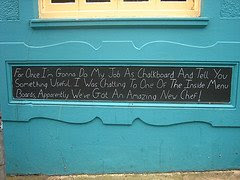 For Once I'm Gonna Do My Job As Chalkboard And Tell You
Something Useful. I Was Chatting To One Of The Inside Menu
Boards, Apparently We've Got An Amazing New Chef!